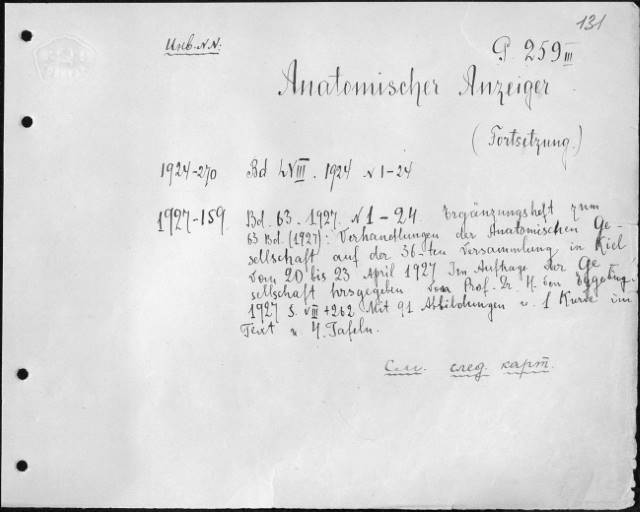 131
Инв. NN:
P 259 III
Anatomischer Anzeiger
(Fortsetzung.)
1924-270 Bd LVIII. 1924 N 1-24
1927-159 Bd. 63. 1927. N 1-24. Ergänzungsheft zum
63 Bd. (1927): Verhandlungen der Anatomischen Ge-
sellschaft auf der 36-ten Versammlung in Kiel
vom 20 bis 23 April 1927 Im Auftrage der Ge-
sellschaft hrsgegeben von Prof. Dr. H. von Eggeling.
1927 S. VIII + 262 Mit 91 Abbildungen u. 1 Kurve im
Text u 4 Tafeln.
См. след. карт.